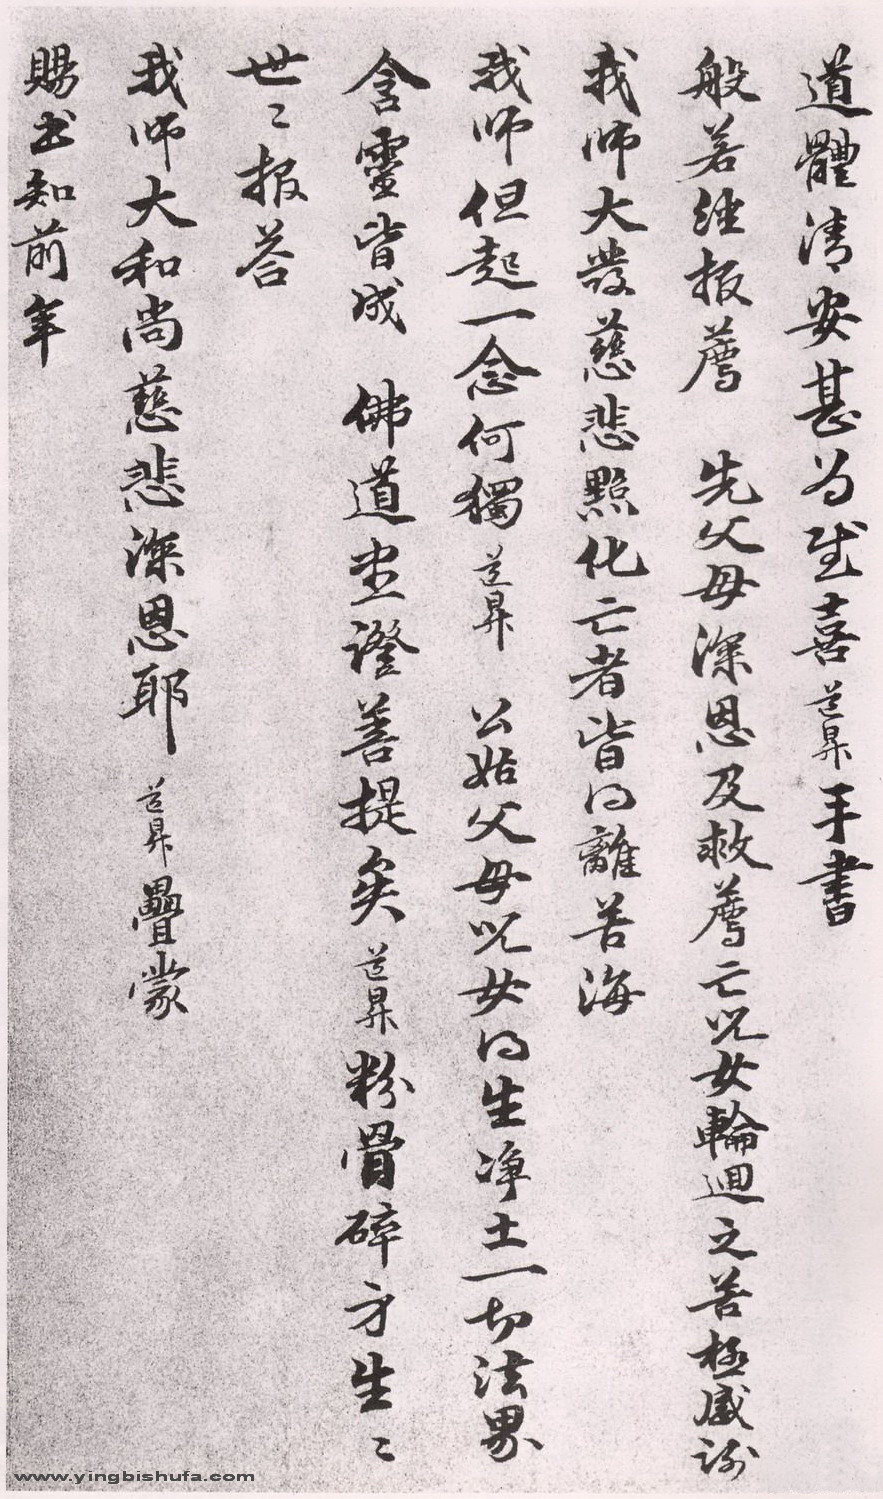 道體清安甚為感喜道昇手書
般若經報薦 先父母深恩及救薦亡兒女輪迴之苦極感謝
我師大發慈悲點化亡者皆得離苦海
我師但起一念何獨道昇 公姑父母兒女得生淨土一切法界
含靈皆成 佛道證菩提矣道昇粉骨碎身生〻
世〻報荅
我師大和尚慈悲深恩耶道昇疊蒙
賜書知前年
www.yingbishufa.com